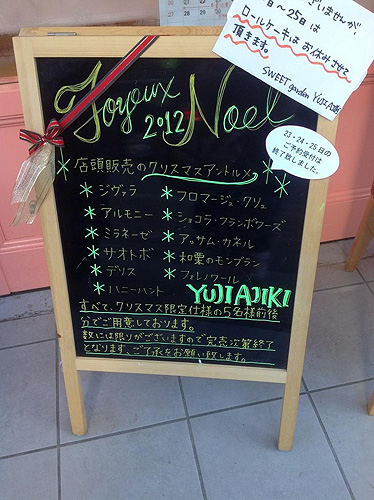 ざいませんが、
日〜25日は
ロールケーキはお休みさせて
頂きます。
SWEET garden YUJI AJIKI
23・24・25日の
ご予約受付は
終了致しました。
Joyeux
2012 Noel
店頭販売のクリスマスアントルメ
* ジヴァラ
* アルモニー
* ミラネーゼ
* サオトボ
* デリス
* ハニーハント
* フロマージュ・クリュ
* ショコラ・フランボワーズ
* アッサム・カネル
* 和栗のモンブラン
* フォレノワール
YUJI AJIKI
すべて、クリスマス限定仕様の5名様前後
分でご用意しております。
数には限りがございますので完売次第終了
となります、ご了承をお願い致します。